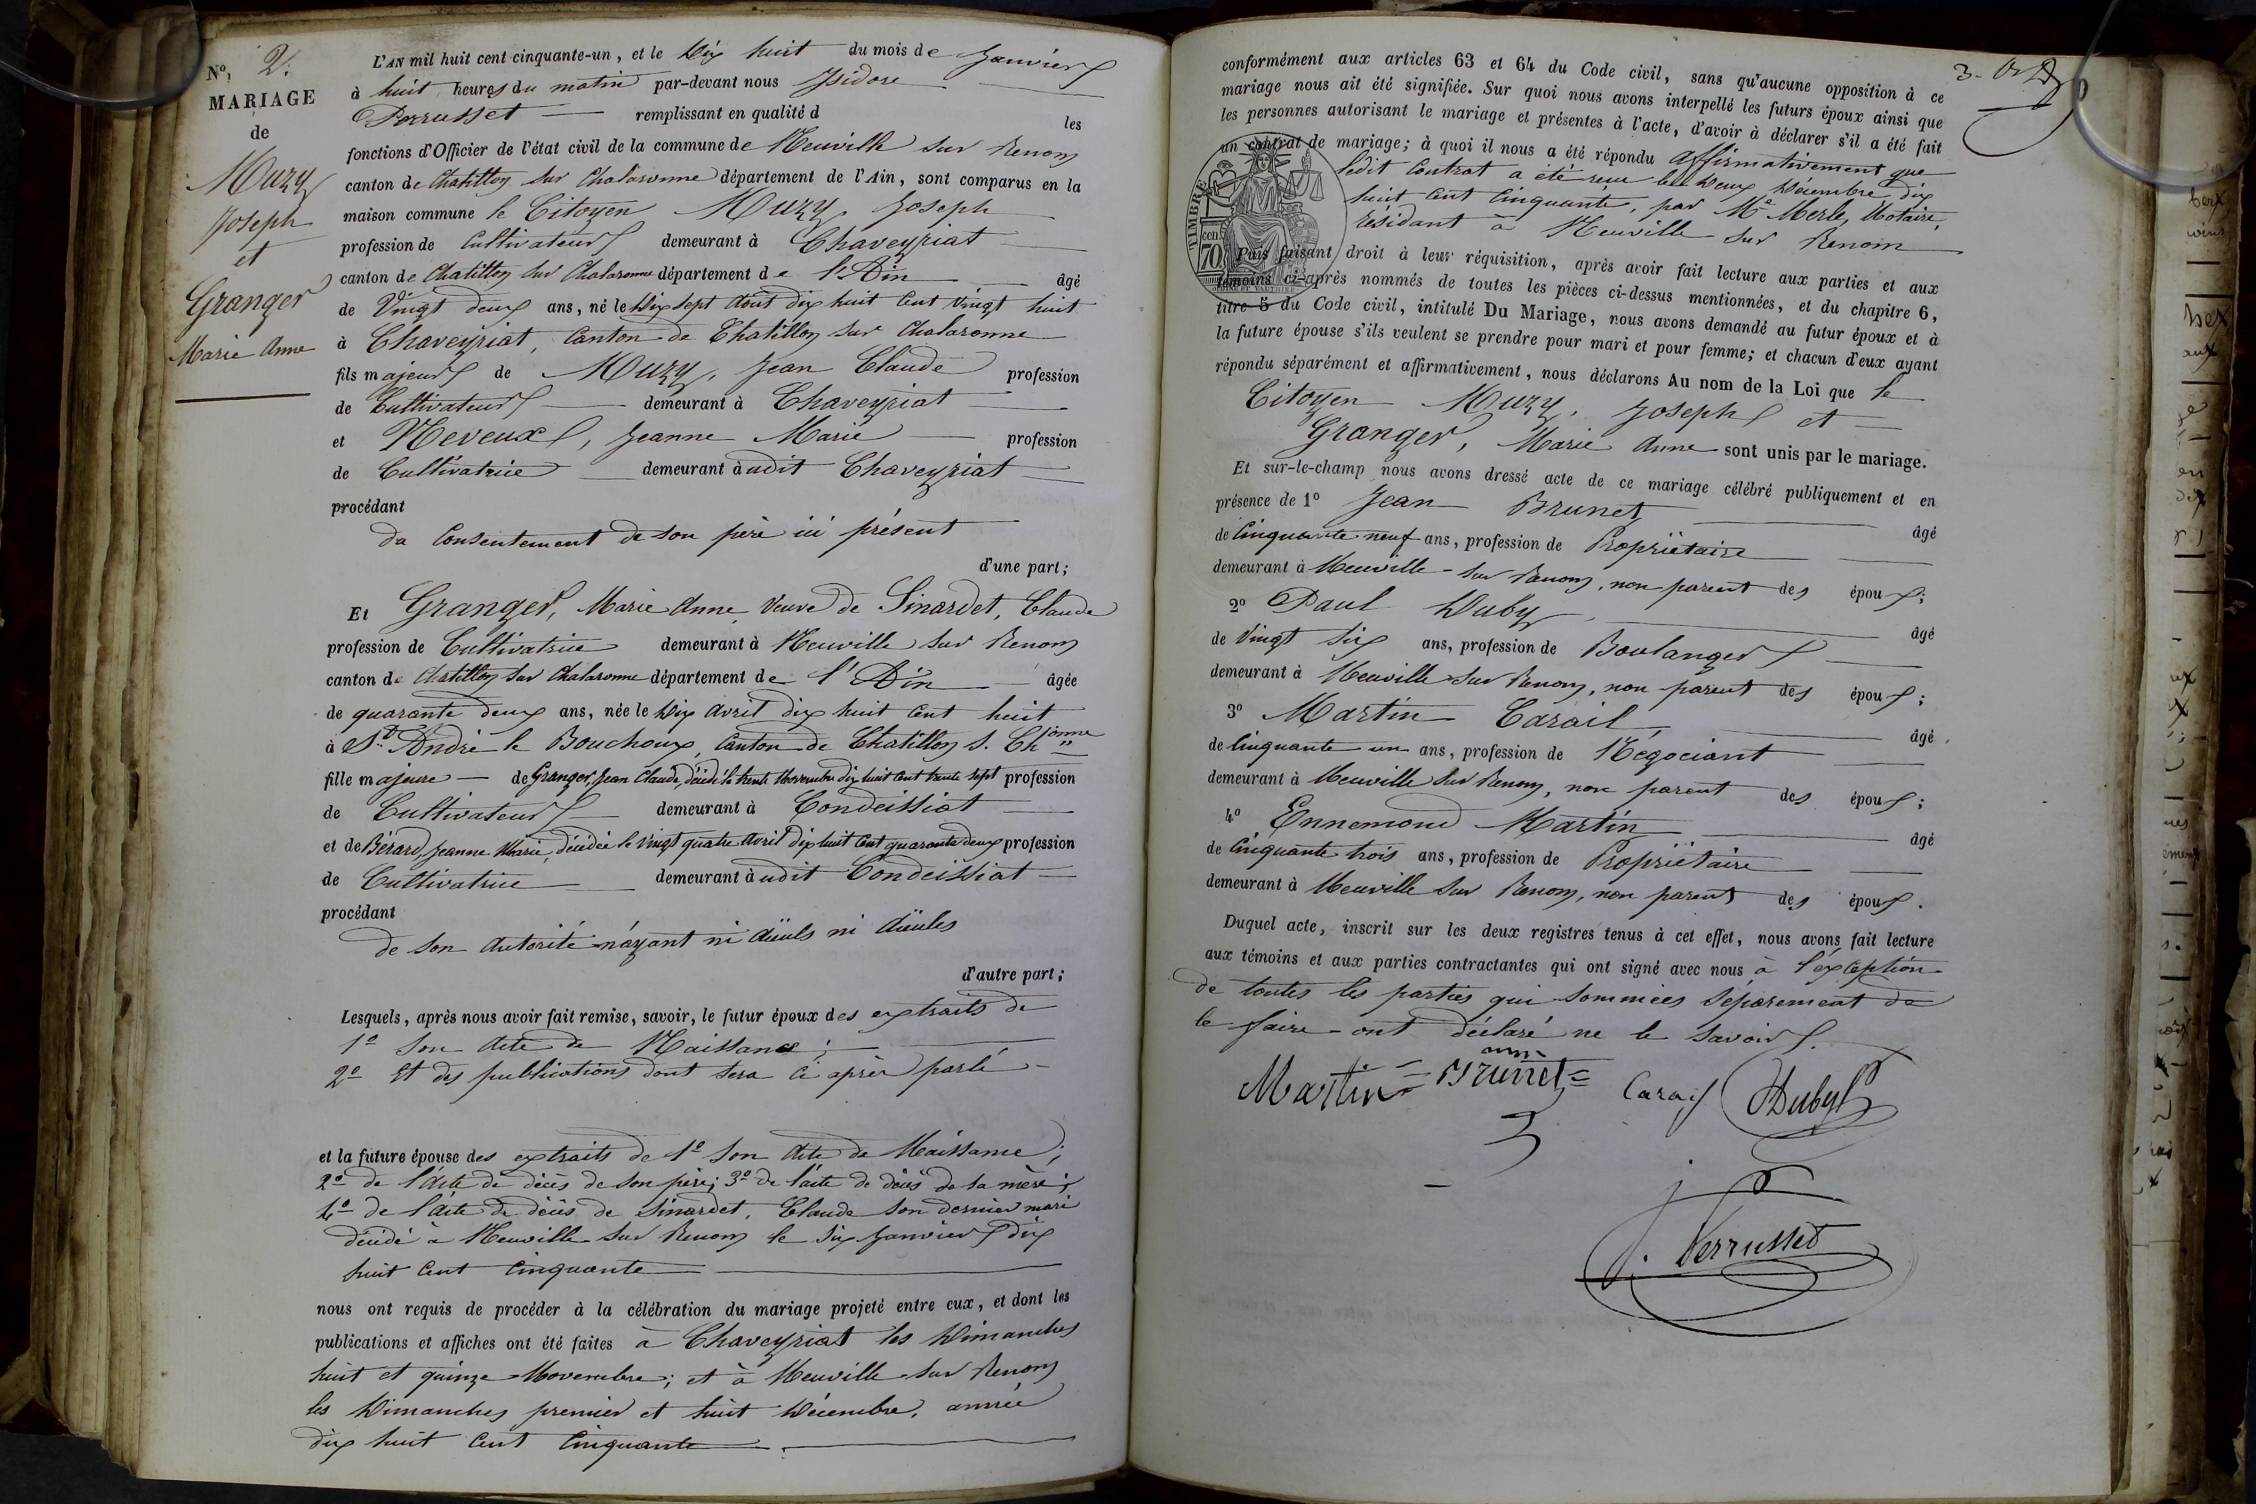 N.º 2.
MARIAGE
de
Muzy
Joseph
et
Granger
Marie Anne
L'AN mil huit cent cinquante-un, et le Dix huit du mois de Janvier
à huit heures du matin par-devant nous Isidore
Perrusset remplissant en qualité d les
fonctions d'Officier de l'état civil de la commune de Neuville sur Renom
canton de Chatillon sur Chalaronne département de l'Ain, sont comparus en la
maison commune le Citoyen Muzy, Joseph
profession de Cultivateur demeurant à Chaveyriat
canton de Chatillon sur Chalaronne département de l'Ain âgé
de Vingt deux ans, né le Dix sept Aout dix huit Cent Vingt huit
à Chaveyriat, Canton de Chatillon sur Chalaronne
fils majeur de Muzy, Jean Claude profession
de Cultivateur demeurant à Chaveyriat
et Neveux, Jeanne Marie profession
de Cultivatrice demeurant à udit Chaveyriat
procédant
du Consentement de son père ici présent
d'une part;
Et Granger, Marie Anne, Veuve de Sinardet, Claude
profession de Cultivatrice demeurant à Neuville sur Renom
canton de Chatillon sur Chalaronne département de l'Ain âgée
de quarante deux ans, née le Dix Avril dix huit Cent huit
à St. André le Bouchoux, Canton de Chatillon s. Chonne
fille majeure de Granger, Jean Claude, décédé le trente Novembre dix huit Cent trente sept profession
de Cultivateur demeurant à Condeissiat
et de Bérard, Jeanne Marie, décédée le Vingt quatre Avril dix huit Cent quarante deux profession
de Cultivatrice demeurant à udit Condeissiat
procédant
de son Autorité n'ayant ni Aïeuls ni Aïeules
d'autre part;
Lesquels, après nous avoir fait remise, savoir, le futur époux des extraits de
1º Son Acte de Naissance;
2º Et des publications dont sera Ci après parlé
et la future épouse des extraits de 1º Son Acte de Naissance;
2º de l'Acte de décès de son père; 3º de l'acte de décès de sa mère;
4º de l'Acte de décès de Sinardet, Claude son dernier mari
décédé à Neuville sur Renom le Six Janvier dix
huit Cent Cinquante
nous ont requis de procéder à la célébration du mariage projeté entre eux, et dont les
publications et affiches ont été faites à Chaveyriat les Dimanches
huit et quinze Novembre; et à Neuville sur Renom
les Dimanches premier et huit Décembre, année
dix huit Cent Cinquante
3.
conformément aux articles 63 et 64 du Code civil, sans qu'aucune opposition à ce
mariage nous ait été signifiée. Sur quoi nous avons interpellé les futurs époux ainsi que
les personnes autorisant le mariage et présentes à l'acte, d'avoir à déclarer s'il a été fait
un contrat de mariage; à quoi il nous a été répondu Affirmativement que
ledit Contrat a été reçu le Deux Décembre dix
huit Cent Cinquante, par Me Merle, Notaire,
résidant à Neuville sur Renom
TIMBRE
70
Puis faisant droit à leur réquisition, après avoir fait lecture aux parties et aux
témoins ci-après nommés de toutes les pièces ci-dessus mentionnées, et du chapitre 6,
titre 5 du Code civil, intitulé Du Mariage, nous avons demandé au futur époux et à
la future épouse s'ils veulent se prendre pour mari et pour femme; et chacun d'eux ayant
répondu séparément et affirmativement, nous déclarons Au nom de la Loi que le
Citoyen Muzy, Joseph et
Granger, Marie Anne sont unis par le mariage.
Et sur-le-champ nous avons dressé acte de ce mariage célébré publiquement et en
présence de 1º Jean Brunet âgé
de Cinquante neuf ans, profession de Propriétaire
demeurant à Neuville sur Renom, non parent des époux;
2º Paul Duby âgé
de Vingt six ans, profession de Boulanger
demeurant à Neuville sur Renom, non parent des époux;
3º Martin Carail âgé
de Cinquante un ans, profession de Négociant
demeurant à Neuville sur Renom, non parent des époux;
4º Ennemond Martin âgé
de Cinquante trois ans, profession de Propriétaire
demeurant à Neuville sur Renom, non parent des époux.
Duquel acte, inscrit sur les deux registres tenus à cet effet, nous avons fait lecture
aux témoins et aux parties contractantes qui ont signé avec nous à l'éxception
de toutes les parties qui sommées séparement de
le faire ont déclaré ne le Savoir.
Martin Brunet Carail Duby
J. Perrusset